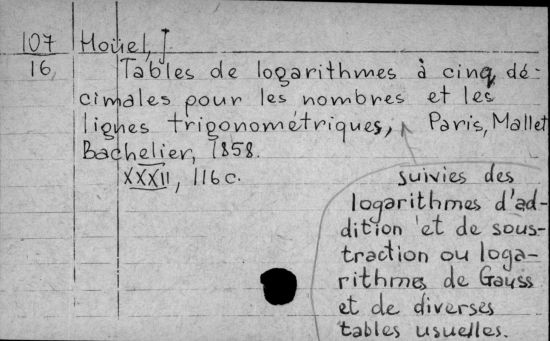 107 Hoüel, J.
16, Tables de logarithmes à cinq dé-
cimales pour les nombres et les
lignes trigonométriques, Paris, Mallet
Bachelier, 1858.
XXXII, 116 c.
suivies des
logarithmes d'ad-
dition et de sous-
traction ou loga-
rithmes de Gauss
et de diverses
tables usuelles.